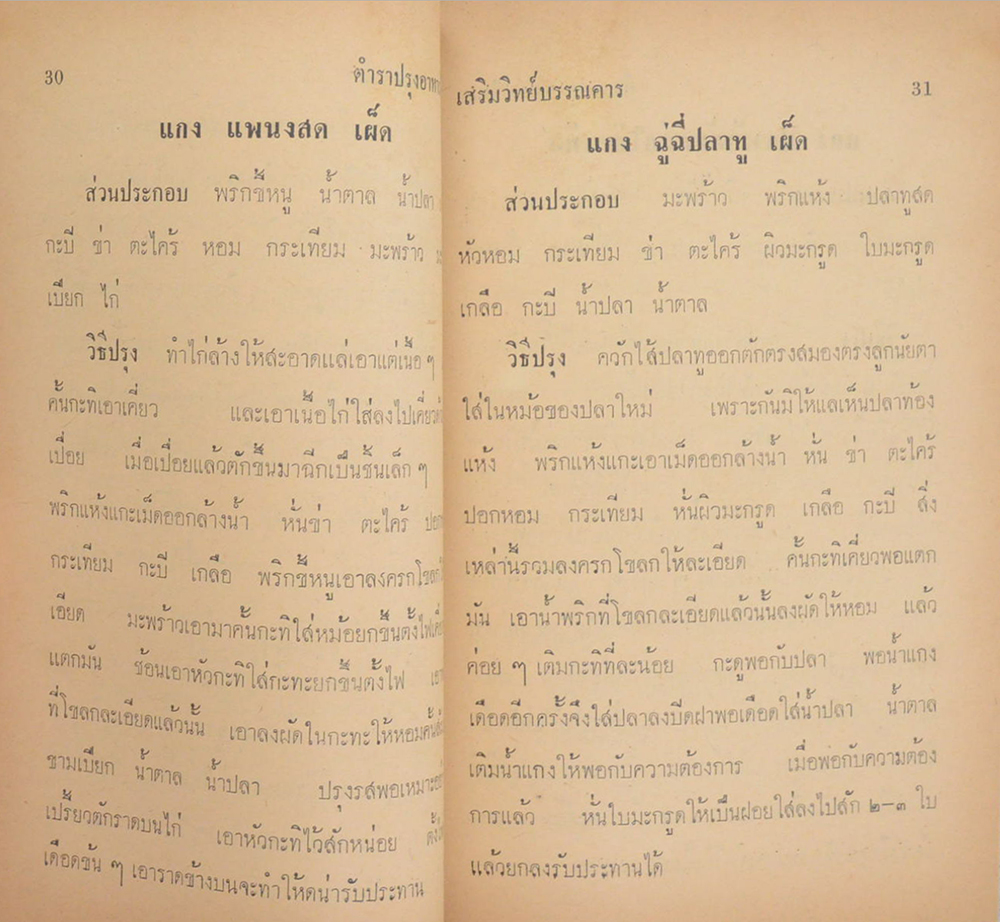 30
ตำราปรุงอาหาร
แกง แพนงสด เผ็ด
ส่วนประกอบ พริกขี้หนู น้ำตาล น้ำปลา
กะปี ข่า ตะไคร้ หอม กระเทียม มะพร้าว
เปียก ไก่
วิธีปรุง ทำไก่ล้างให้สะอาดแล่เอาแต่เนื้อ ๆ
คั้นกะทิเอาเคี่ยว และเอาเนื้อไก่ใส่ลงไปเคี่ยว
เปื่อย เมื่อเปื่อยแล้วตักขึ้นมาฉีกเป็นชิ้นเล็ก ๆ
พริกแห้งแกะเม็ดออกล้างน้ำ หั่นข่า ตะไคร้ ปอก
กระเทียม กะปี เกลือ พริกขี้หนูเอาลงครกโขลก
เอียด มะพร้าวเอามาคั้นกะทิใส่หม้อยกขึ้นตั้งไฟ
แตกมัน ช้อนเอาหัวกะทิใส่กะทะยกขึ้นตั้งไฟ
ที่โขลกละเอียดแล้วนั้น เอาลงผัดในกะทะให้หอม
ขามเปียก น้ำตาล น้ำปลา ปรุงรสพอเหมาะ
เปรี้ยวตักราดบนไก่ เอาหัวกะทิไว้สักหน่อย ตั้ง
เดือดข้น ๆ เอาราดข้างบนจะทำให้ดูน่ารับประทาน
เสริมวิทย์บรรณคาร
31
แกง ฉู่ฉี่ปลาทู เผ็ด
ส่วนประกอบ มะพร้าว พริกแห้ง ปลาทูสด
หัวหอม กระเทียม ข่า ตะไคร้ ผิวมะกรูด ใบมะกรูด
เกลือ กะปี น้ำปลา น้ำตาล
วิธีปรุง ควักไส้ปลาทูออกตักตรงสมองตรงลูกนัยตา
ใส่ในหม้อของปลาใหม่ เพราะกันมิให้แลเห็นปลาท้อง
แห้ง พริกแห้งแกะเอาเม็ดออกล้างน้ำ หั่น ข่า ตะไคร้
ปอกหอม กระเทียม หั่นผิวมะกรูด เกลือ กะปี สิ่ง
เหล่านี้รวมลงครกโขลกให้ละเอียด คั้นกะทิเคี่ยวพอแตก
มัน เอาน้ำพริกที่โขลกละเอียดแล้วนั้นลงผัดให้หอม แล้ว
ค่อย ๆ เติมกะทิทีละน้อย กะดูพอกับปลา พอน้ำแกง
เดือดอีกครั้งจึงใส่ปลาลงปิดฝาพอเดือดใส่น้ำปลา น้ำตาล
เติมน้ำแกงให้พอกับความต้องการ เมื่อพอกับความต้อง
การแล้ว หั่นใบมะกรูดให้เป็นฝอยใส่ลงไปสัก ๒-๓ ใบ
แล้วยกลงรับประทานได้